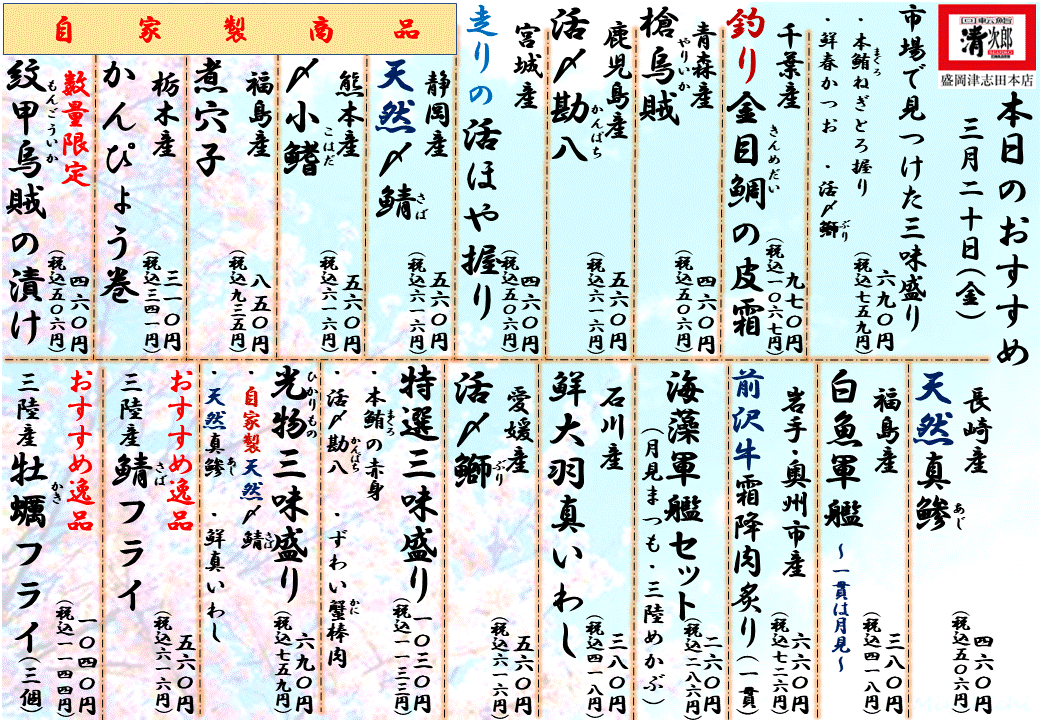 回転鮨
清次郎
盛岡津志田本店
本日のおすすめ
三月二十日(金)
市場で見つけた三味盛り
・本鮪ねぎとろ握り
まぐろ
・鮮春かつお ・活〆鰤
ぶり
六九〇円
(税込七五九円)
千葉産
釣り金目鯛の皮霜
きんめだい
九七〇円
(税込一〇六七円)
青森産
槍烏賊
やりいか
四六〇円
(税込五〇六円)
鹿児島産
活〆勘八
かんぱち
五六〇円
(税込六一六円)
宮城産
走りの活ほや握り
四六〇円
(税込五〇六円)
自家製商品
静岡産
天然〆鯖
さば
五六〇円
(税込六一六円)
熊本産
〆小鰭
こはだ
五六〇円
(税込六一六円)
福島産
煮穴子
八五〇円
(税込九三五円)
栃木産
かんぴょう巻
三一〇円
(税込三四一円)
数量限定
紋甲烏賊の漬け
もんごういか
四六〇円
(税込五〇六円)
長崎産
天然真鯵
あじ
四六〇円
(税込五〇六円)
福島産
白魚軍艦
～一貫は月見～
三八〇円
(税込四一八円)
岩手・奥州市産
前沢牛霜降肉炙り(一貫)
六六〇円
(税込七二六円)
海藻軍艦セット
(月見まつも・三陸めかぶ)
二六〇円
(税込二八六円)
石川産
鮮大羽真いわし
三八〇円
(税込四一八円)
愛媛産
活〆鰤
ぶり
五六〇円
(税込六一六円)
特選三味盛り
・本鮪の赤身
まぐろ
・活〆勘八 ・ずわい蟹棒肉
かんぱち
かに
一〇三〇円
(税込一一三三円)
光物三味盛り
ひかりもの
・自家製天然〆鯖
さば
・天然真鯵 ・鮮真いわし
あじ
六九〇円
(税込七五九円)
おすすめ逸品
三陸産鯖フライ
さば
五六〇円
(税込六一六円)
おすすめ逸品
三陸産牡蠣フライ(三個)
かき
一〇四〇円
(税込一一四四円)